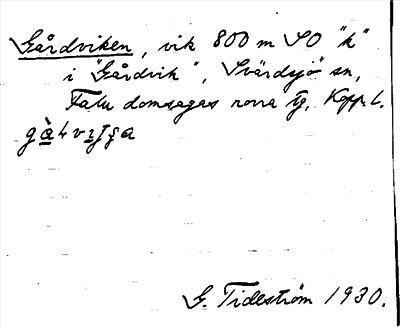 Gårdviken, vik 800 m SO "k"
i "Gårdvik", Svärdsjö sn,
Falu domsagas norra tg, Kopp. l.
G. Tideström 1930.